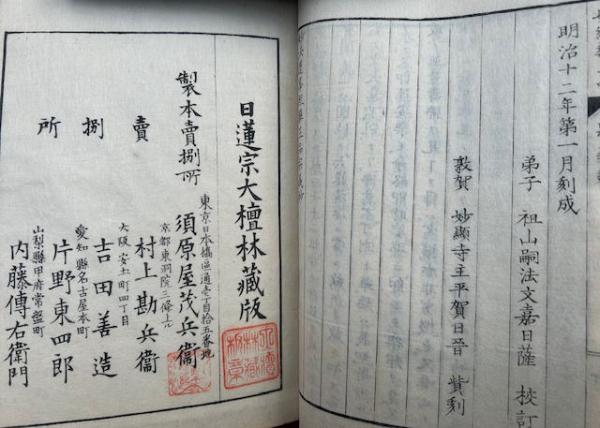 明治十二年第一月刻成
弟子 祖山嗣法文嘉日薩 挍訂
敦賀 妙顯寺主平賀日晉 貲刻
日蓮宗大檀林藏版
製本賣捌所
東京日本橋區通壱丁目拾五番地
須原屋茂兵衞
京都東洞院三條上ル
村上勘兵衞
大阪安土町四丁目
吉田善造
愛知縣名古屋本町
片野東四郎
山梨縣甲府常盤町
内藤傳右衛門
賣捌所